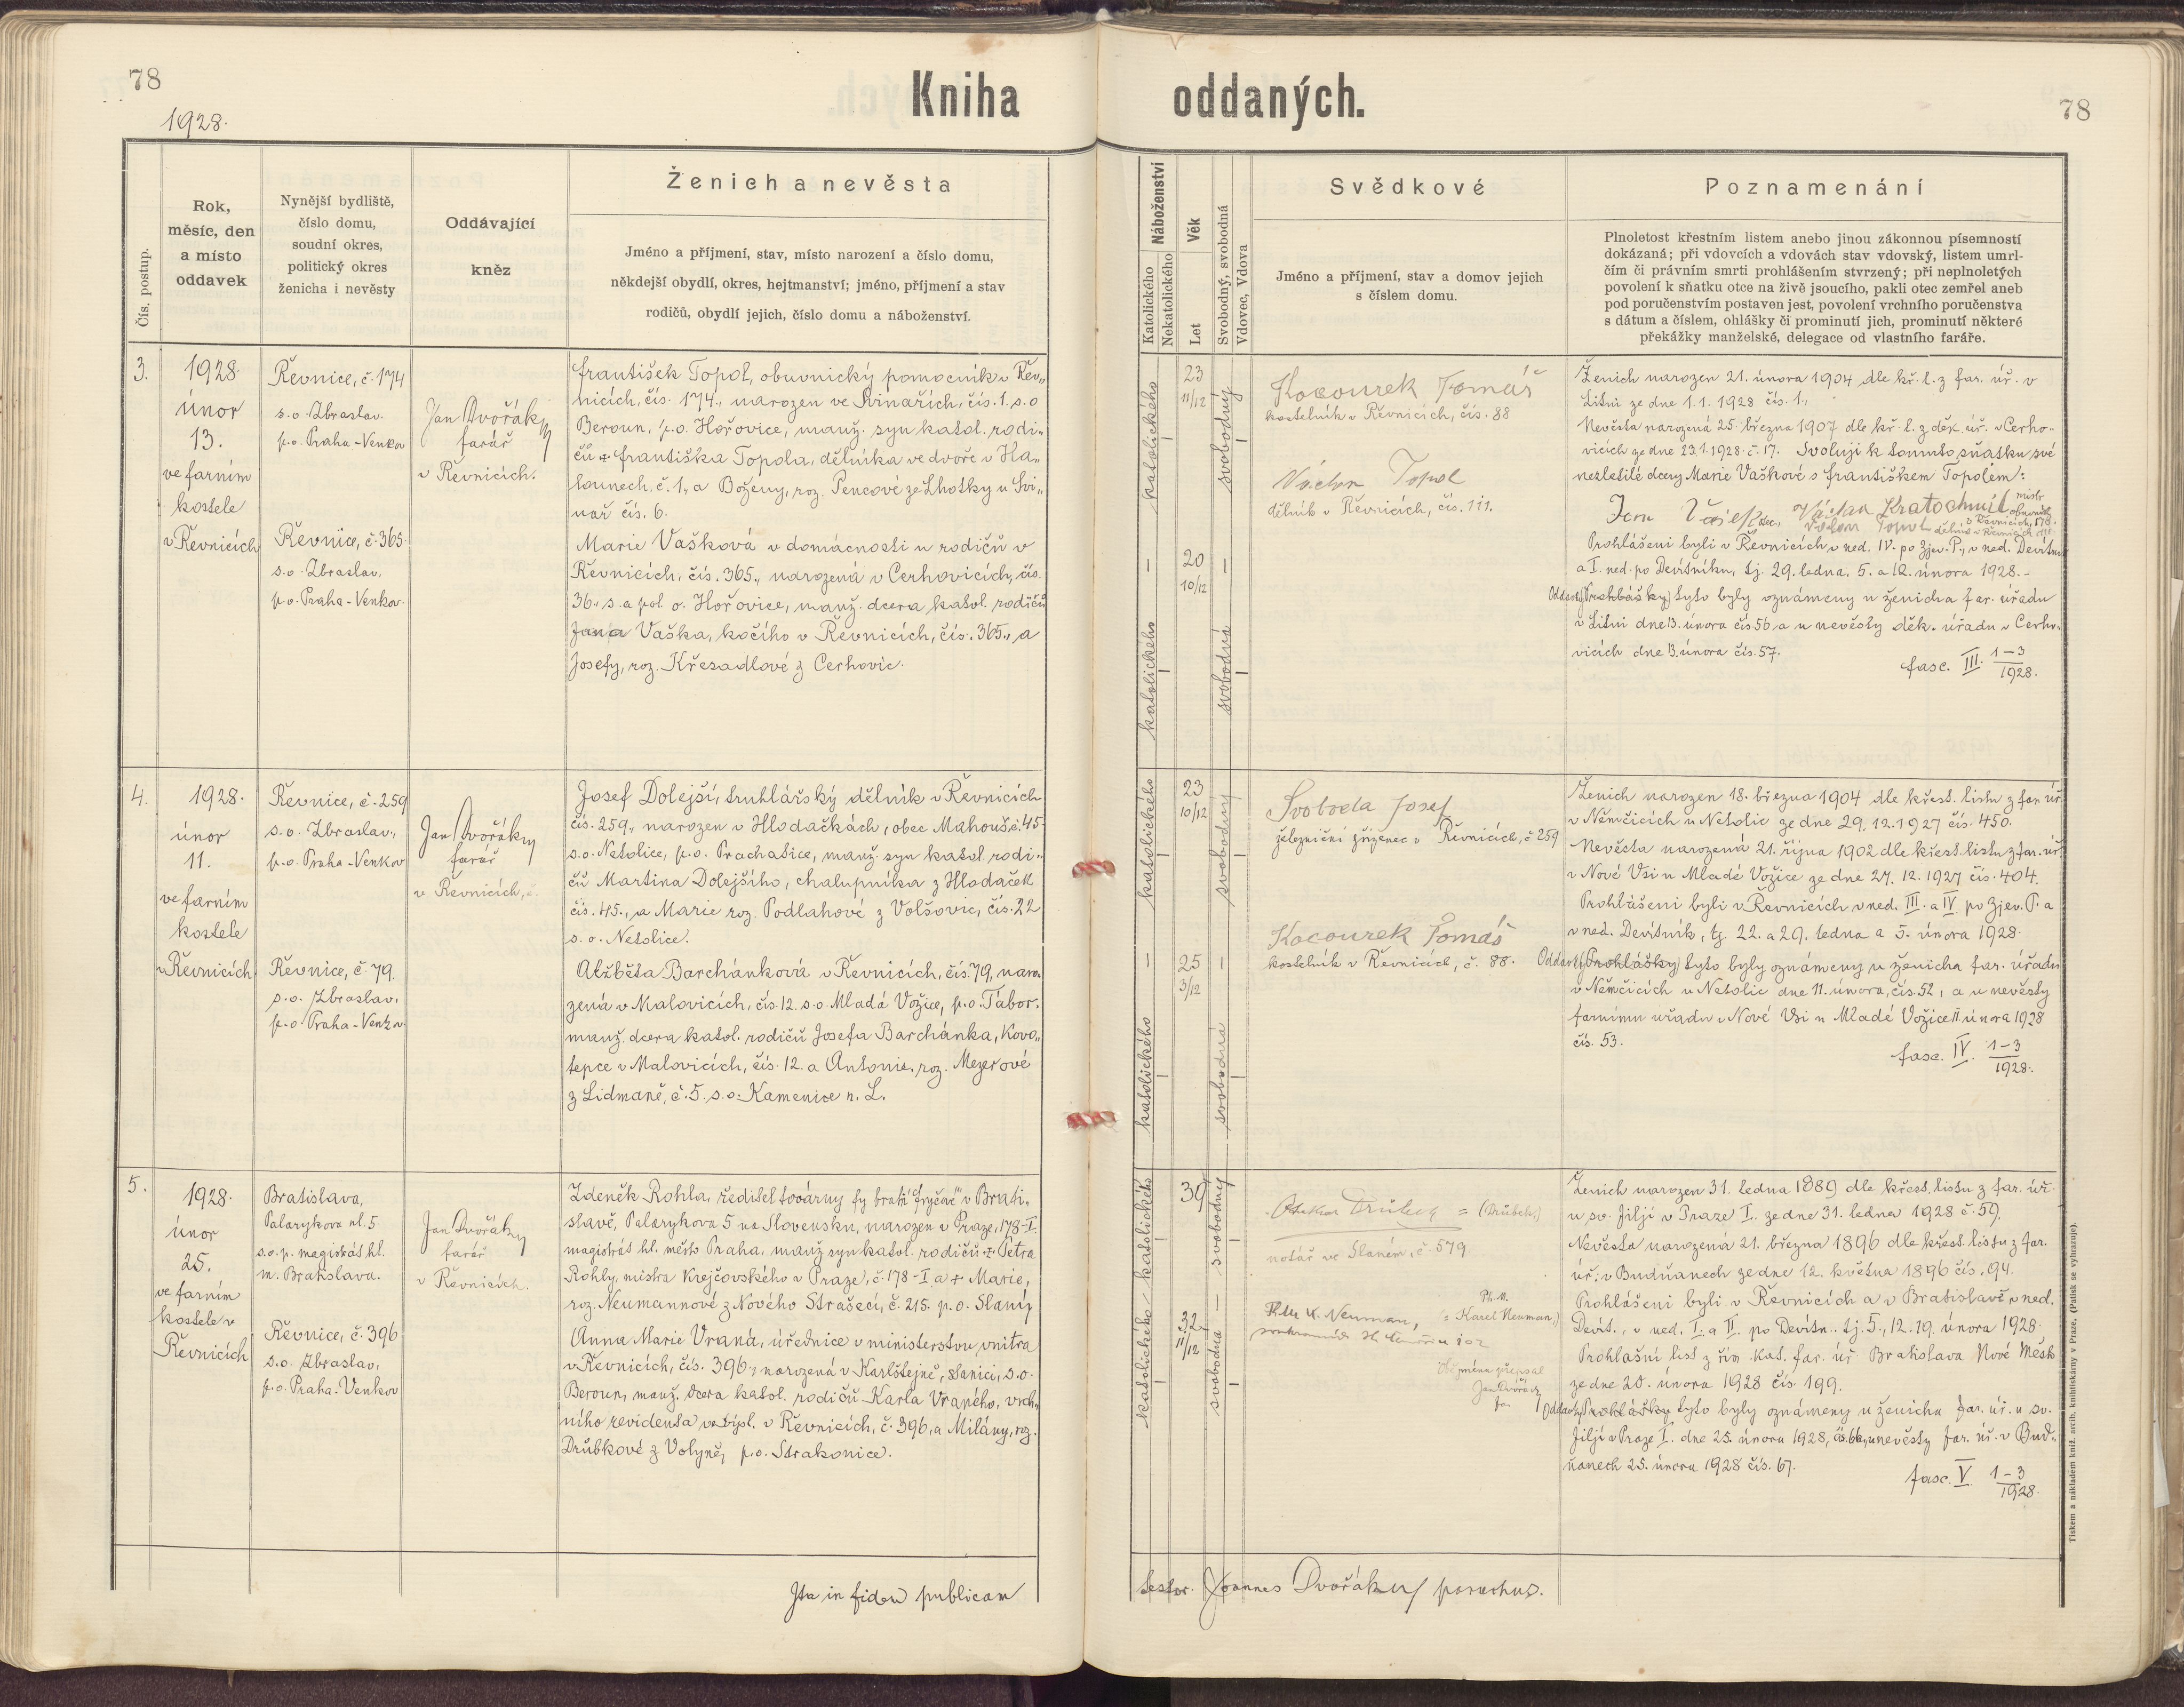 78
Kniha oddaných.
78
1928.
Čís. postup.
Rok,
měsíc, den
a místo
oddavek
Nynější bydliště,
číslo domu,
soudní okres,
politický okres
ženicha i nevěsty
Oddávající
kněz
Ženich a nevěsta
Jméno a příjmení, stav, místo narození a číslo domu,
někdejší obydlí, okres, hejtmanství; jméno, příjmení a stav
rodičů, obydlí jejich, číslo domu a náboženství.
Náboženství
Katolického
Nekatolického
Věk
Let
Svobodný, svobodná
Vdovec, Vdova
Svědkové
Jméno a příjmení, stav a domov jejich
s číslem domu.
Poznamenání
Plnoletost křestním listem anebo jinou zákonnou písemností
dokázaná; při vdovcích a vdovách stav vdovský, listem umrl-
čím či právním smrti prohlášením stvrzený; při neplnoletých
povolení k sňatku otce na živě jsoucího, pakli otec zemřel aneb
pod poručenstvím postaven jest, povolení vrchního poručenstva
s dátum a číslem, ohlášky či prominutí jich, prominutí některé
překážky manželské, delegace od vlastního faráře.
3.
1928
únor
13.
ve farním
kostele
v Řevnicích
Řevnice, č. 174
s.o. Zbraslav.
p.o. Praha-Venkov
Řevnice, č. 365
s.o. Zbraslav.
p.o. Praha-Venkov.
Jan Dvořák
farář
v Řevnicích.
František Topol, obuvnický pomocník v Řev„
nicích, čís. 174., narozen ve Svinařích, čís. 1. s.o
Beroun, p.o. Hořovice, manž. syn katol. rodi„
čů + Františka Topola, dělníka ve dvoře v Ha„
lounech, č. 1., a Boženy, roz. Pencové ze Lhotky u Svi„
nař čís. 6.
Marie Vašková v domácnosti u rodičů v
Řevnicích, čís. 365., narozená v Cerhovicích, čís.
36., s. a pol. o. Hořovice, manž. dcera katol. rodičů
Jana Vaška, kočího v Řevnicích, čís. 365., a
Josefy, roz. Křesadlové z Cerhovic.
katolického
–
katolického
23
11/12
20
10/12
svobodný
–
svobodná
Kocourek Tomáš
kostelník v Řevnicích, čís. 88
Václav Topol
dělník v Řevnicích, čís. 111.
Ženich narozen 21. února 1904 dle kř. l. z far. úř. v
Litni ze dne 1.1. 1928 čís. 1.,
Nevěsta narozená 25. března 1907 dle kř. l. z děk. úř. v Cerho„
vicích ze dne 23.1.1928 č. 17. Svoluji k tomuto sňatku své
nezletilé dcery Marie Vaškové s Františkem Topolem:
Jan Vašek Václav Kratochvíl mistr obuvník
v Řevnicích,
Václav Topol dělník v Řevnicích 111
Prohlášeni byli v Řevnicích v ned. IV. po Zjev. P., v ned. Devítník
a I. ned. po Devítníku, tj. 29. ledna, 5. a 12. února 1928. –
Oddavky (Prohlášky) tyto byly oznámeny u ženicha far. úřadu
v Litni dne 13. února čís. 56 a u nevěsty děk. úřadu v Cerho„
vicích dne 13. února čís. 57.
fasc. III. 1–3
1928.
4.
1928.
únor
11.
ve farním
kostele
v Řevnicích
Řevnice, č. 259
s.o. Zbraslav.,
p.o. Praha-Venkov
Řevnice, č. 79.
s.o. Zbraslav.
p.o. Praha-Venkov.
Jan Dvořák
farář
v Řevnicích,
Josef Dolejší, truhlářský dělník v Řevnicích
čís. 259., narozen v Hlodačkách, obec Mahouš, č. 45
s.o. Netolice, p.o. Prachatice, manž. syn katol. rodi„
čů Martina Dolejšího, chalupníka z Hlodaček
čís. 45., a Marie roz. Podlahové z Volšovic, čís. 22
s. o. Netolice.
Alžběta Barchánková v Řevnicích, čís. 79, naro„
zená v Malovicích, čís. 12. s.o. Mladá Vožice, p.o. Tábor.
manž. dcera katol. rodičů Josefa Barchánka, Kovo„
tepce v Malovicích, čís. 12. a Antonie, roz. Meyerové
z Lidmaně, č. 5. s.o. Kamenice n. L.
katolického
–
katolického
23
10/12
25
3/12
svobodný
–
svobodná
Svoboda Josef
železniční zřízenec v Řevnicích, č 259
Kocourek Tomáš
kostelník v Řevnicích, č. 88.
Ženich narozen 18. března 1904 dle křest. listu z far. úř.
v Němčicích u Netolic ze dne 29. 12. 1927 čís. 450.
Nevěsta narozená 21. října 1902 dle křest. listu z far. úř.
v Nové Vsi u Mladé Vožice ze dne 27. 12. 1927 čís. 404.
Prohlášeni byli v Řevnicích v ned. III. a IV. po Zjev. P. a
v ned. Devítník, tj. 22. a 29. ledna a 5. února 1928.
Oddavky (Prohlášky) tyto byly oznámeny u ženicha far. úřadu
v Němčicích u Netolic dne 11. února, čís. 52, a u nevěsty
farnímu úřadu v Nové Vsi u Mladé Vožice 11 února 1928
čís. 53.
fasc. IV. 1–3
1928.
5.
1928.
únor
25.
ve farním
kostele v
Řevnicích
Bratislava,
Palarykova ul. 5.
s.o. p. magistrát hl.
m. Bratislava.
Řevnice, č. 396
s.o. Zbraslav,
p.o. Praha-Venkov
Jan Dvořák
farář
v Řevnicích.
Zdeněk Rohla, ředitel továrny fy bratři Fryčov v Brati„
slavě, Palarykova 5 na Slovensku, narozen v Praze, 178-I.
magistrát hl. město Praha, manž. syn katol. rodičů + Petra
Rohly, mistra krejčovského v Praze, č. 178-I a + Marie,
roz. Neumannové z Nového Strašecí, č. 215. p.o. Slaný
Anna Marie Vraná, úřednice v ministerstvu vnitra
v Řevnicích, čís. 396., narozená v Karlštejně, stanici, s.o.
Beroun, manž. dcera katol. rodičů Karla Vraného, vrch„
ního revidenta ve výsl. v Řevnicích, č. 396, a Milány, roz.
Drůbkové z Volyně, p.o. Strakonice.
katolického
katolického
39
32
11/12
svobodný
–
svobodná
Drůbek = (Drůbek)
notář ve Slaném, č. 579
K. Neuman, = Karel Neuman,)
Obě jména přepsal
Jan Dvořák
far.
Ženich narozen 31. ledna 1889 dle křest. listu z far. úř.
u sv. Jiljí v Praze I. ze dne 31. ledna 1928 č. 59.
Nevěsta narozená 21. března 1896 dle křest. listu z far.
úř. v Budňanech ze dne 12. května 1896 čís. 94.
Prohlášeni byli v Řevnicích a v Bratislavě v ned.
Devít., v ned. I. a II. po Devítn. tj. 5., 12. 19. února 1928.
Prohlašní list z řím. kat. far. úř. Bratislava Nové Město
ze dne 20. února 1928 čís. 199.
Oddavky (Prohlášky) tyto byly oznámeny u ženicha far. úř. u sv.
Jiljí v Praze I. dne 25. února 1928, čís. 66, u nevěsty far. úř. v Bud„
ňanech 25. února 1928 čís. 67.
fasc. V. 1–3
1928.
Ita in fidem publicam
testor. Joannes Dvořák parochus.
Tiskem a nákladem kníž. arcib. knihtiskárny v Praze. (Patisk se vyhrazuje).